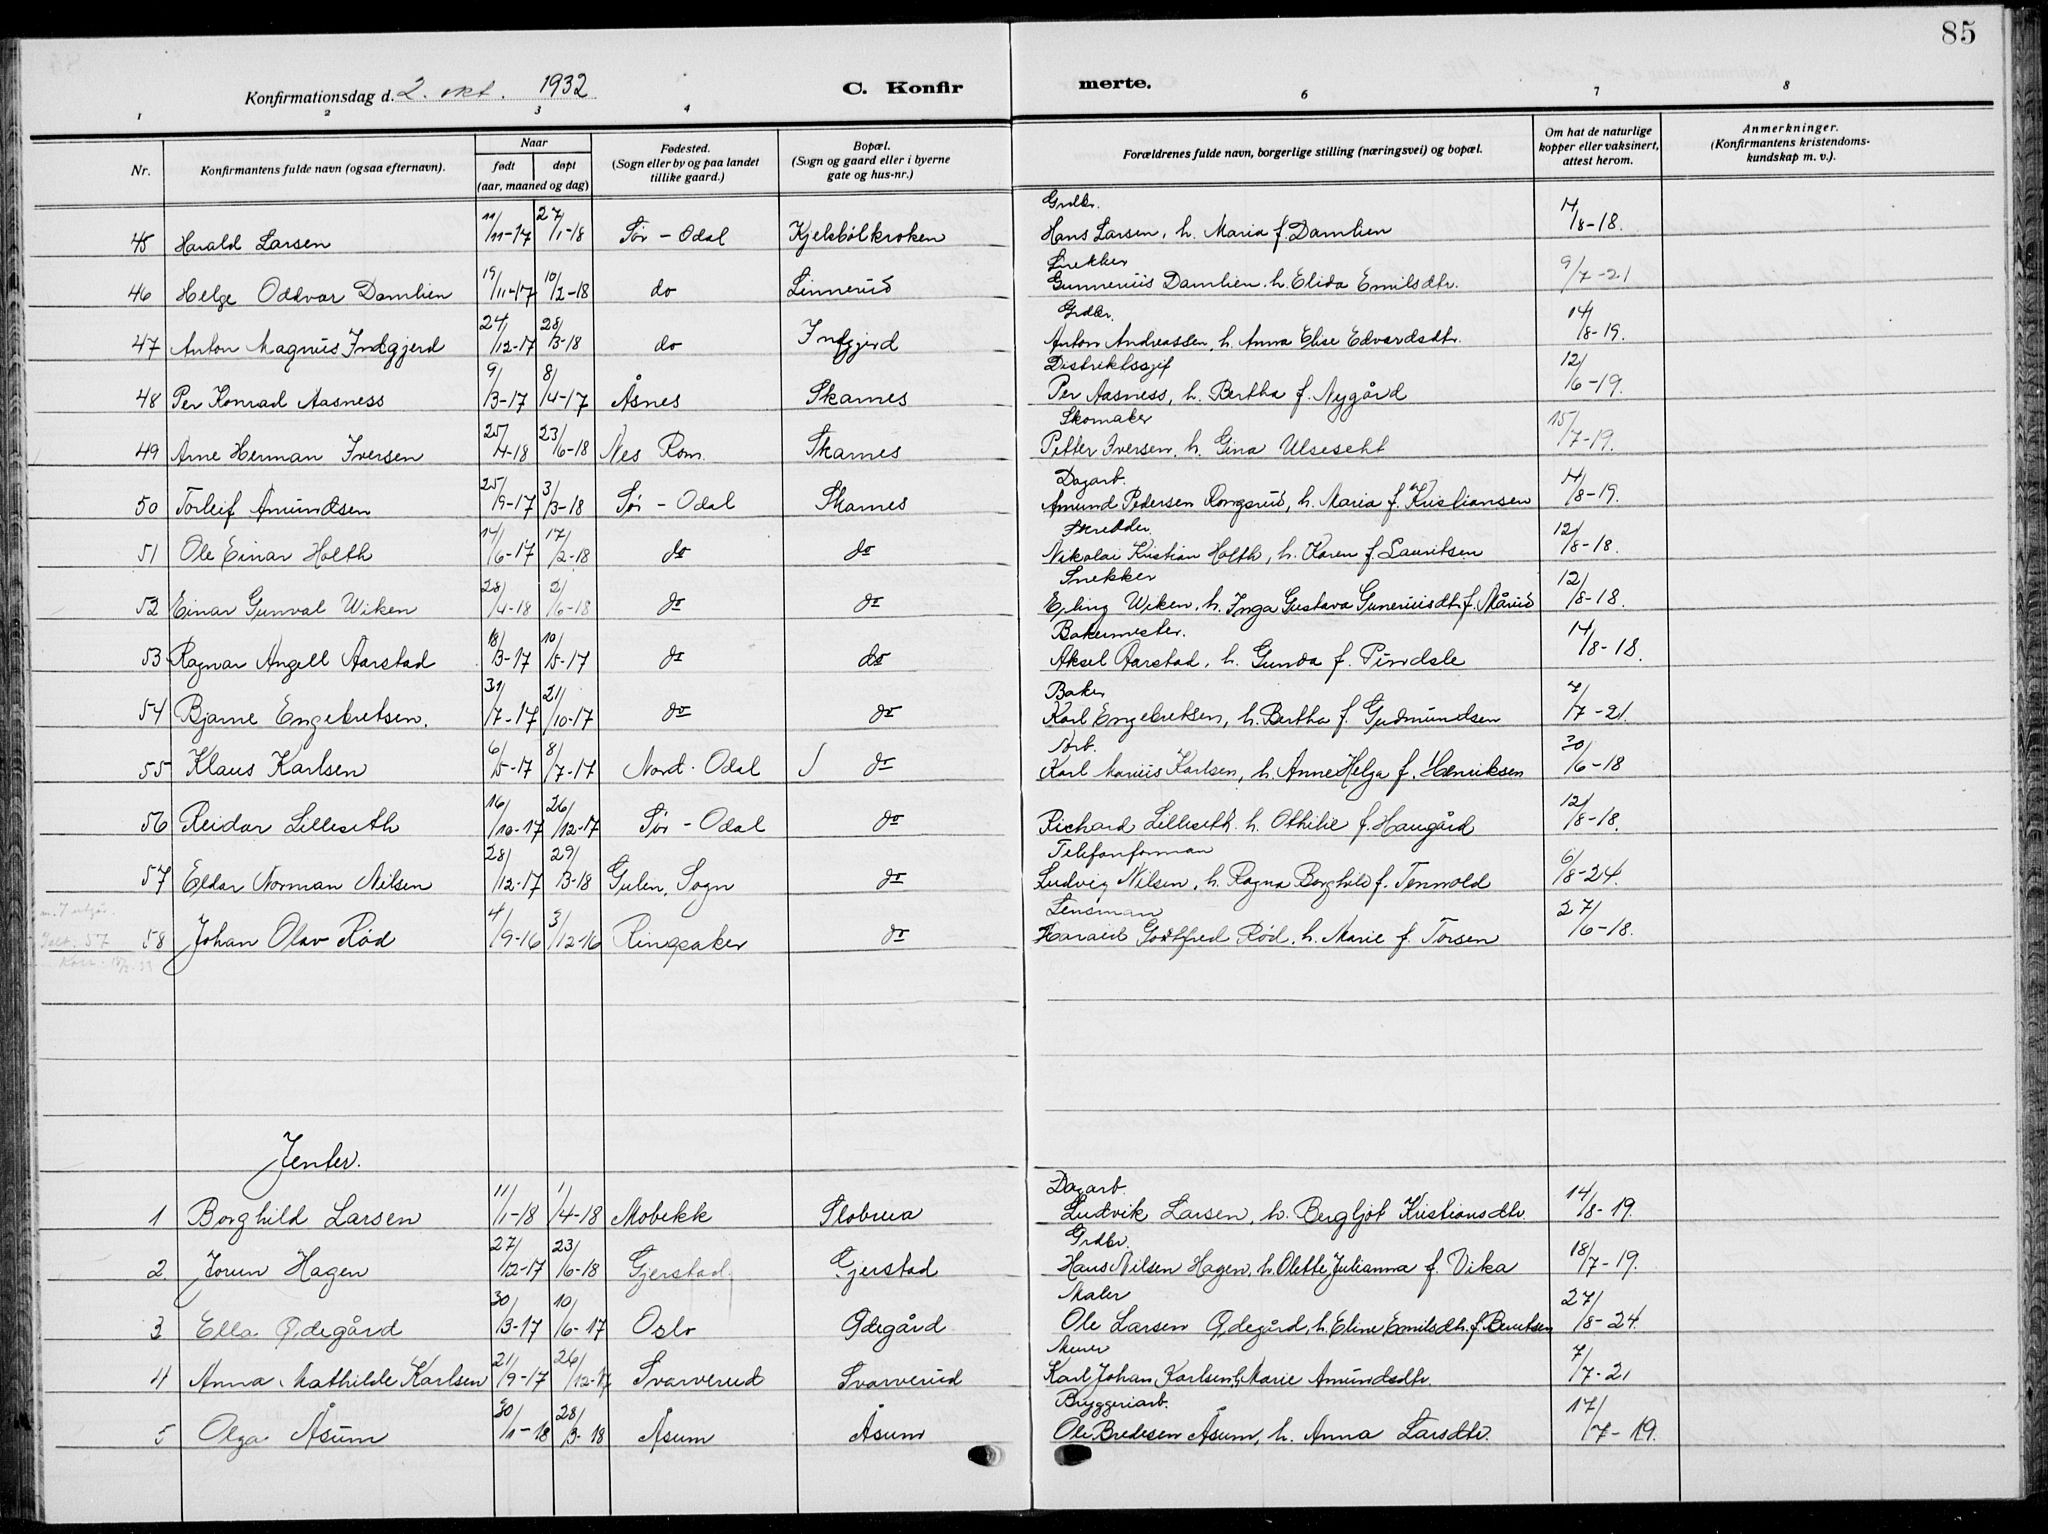 85
Konfirmationsdag d. 2. okt. 1932 C. Konfir merte.
1 2 3 4 6 7 8
Nr. Konfirmantens fulde navn (ogsaa efternavn). Naar født døpt (aar, maaned og dag) Fødested. (Sogn eller by og paa landet tillike gaard.) Bopæl. (Sogn og gaard eller i byerne gate og hus-nr.) Forældrenes fulde navn, borgerlige stilling (næringsvei) og bopæl. Om hat de naturlige kopper eller vaksinert, attest herom. Anmerkninger. (Konfirmantens kristendoms-kundskap m. v.).
Grdbr.
45 Harald Larsen 11/11-17 27/1-18 Sør-Odal Kjelsbölkroken Hans Larsen, h. Maria f. Damlien 14/8-18.
Snekker
46 Helge Oddvar Damlien 19/11-17 10/2-18 do Linnerud Gunnerius Damlien. h. Elida Emilsdtr. 9/7-21
Grdbr.
47 Anton Magnus Indgjerd 24/12-17 28/3-18 do Indgjerd Anton Andreassen, h. Anna Elise Edvardsdtr. 14/8-19.
Distriktssjef
48 Per Konrad Aasness 9/3-17 8/4-17 Åsnes Skarnes Per Aasness, h. Bertha f. Nygård 12/6-19.
Skomaker
49 Arne Herman Iversen 25/4-18 23/6-18 Nes Rom. Skarnes Petter Iversen, h. Gina Ulseseht 15/7-19.
Dagarb.
50 Torleif Amundsen 25/9-17 3/3-18 Sør-Odal Skarnes Amund Pedersen Rongsrud, h. Maria f. Kristiansen 14/8-19.
Skredder
51 Ole Einar Holth 14/6-17 17/2-18 do do Nikolai Kristian Holth, h. Karen f. Lauritsen 12/8-18.
Snekker
52 Einar Gunval Wiken 28/4-18 2/6-18 do do Erling Wiken, h. Inga Gustava Gunneriusdtr. f. Mårud 12/8-18.
Bakermester.
53 Ragnar Angell Aarstad 18/3-17 10/5-17 do do Aksel Aarstad, h. Gunda f. Pindsle 14/8-18.
Baker
54 Bjarne Engebretsen. 31/7-17 21/10-17 do do Karl Engebretsen, h. Bertha f. Gudmundsen 7/7-21.
Arb.
55 Klaus Karlsen 6/5-17 8/7-17 Nord-Odal do Karl Marius Karlsen, h. Anne Helga f. Henriksen 30/6-18
56 Reidar Lilleseth 16/10-17 26/12-17 Sør-Odal do Richard Lilleseth. h. Othilie f. Haugård 12/8-18.
Telefonforman
57 Eldar Norman Nilsen 28/12-17 29/3-18 Gulen, Sogn do Ludvig Nilsen, h. Ragna Borghild f. Tennold 6/8-24.
Lensman
58 Johan Olav Rød 4/9-16 3/12-16 Ringsaker do Harald Godtfred Rød, h. Marie f. Torsen 27/6-18.
57
Jenter.
Dagarb.
1 Borghild Larsen 11/1-18 1/4-18 Mobekk Slobrua Ludvik Larsen, h. Bergljot Kristiansdtr. 14/8-19.
Grdbr.
2 Jorun Hagen 27/12-17 23/6-18 Gjerstad Gjerstad Hans Nilsen Hagen, h. Olette Julianna f. Vika 18/7-19.
Maler
3 Ella Ødegård 30/3-17 10/6-17 Oslo Ødegård Ole Larsen Ødegård, h. Eline Emilsdtr. f. Berntsen 27/8-24.
Murer
4 Anna Mathilde Karlsen 21/9-17 26/12-17 Svarverud Svarverud Karl Johan Karlsen, h. Marie Amundsdtr. 7/7-21
Bryggeriarb.
5 Olga Åsum 30/1-18 28/3-18 Åsum Åsum Ole Bredesen Åsum, h. Anna Larsdtr. 17/7-19.